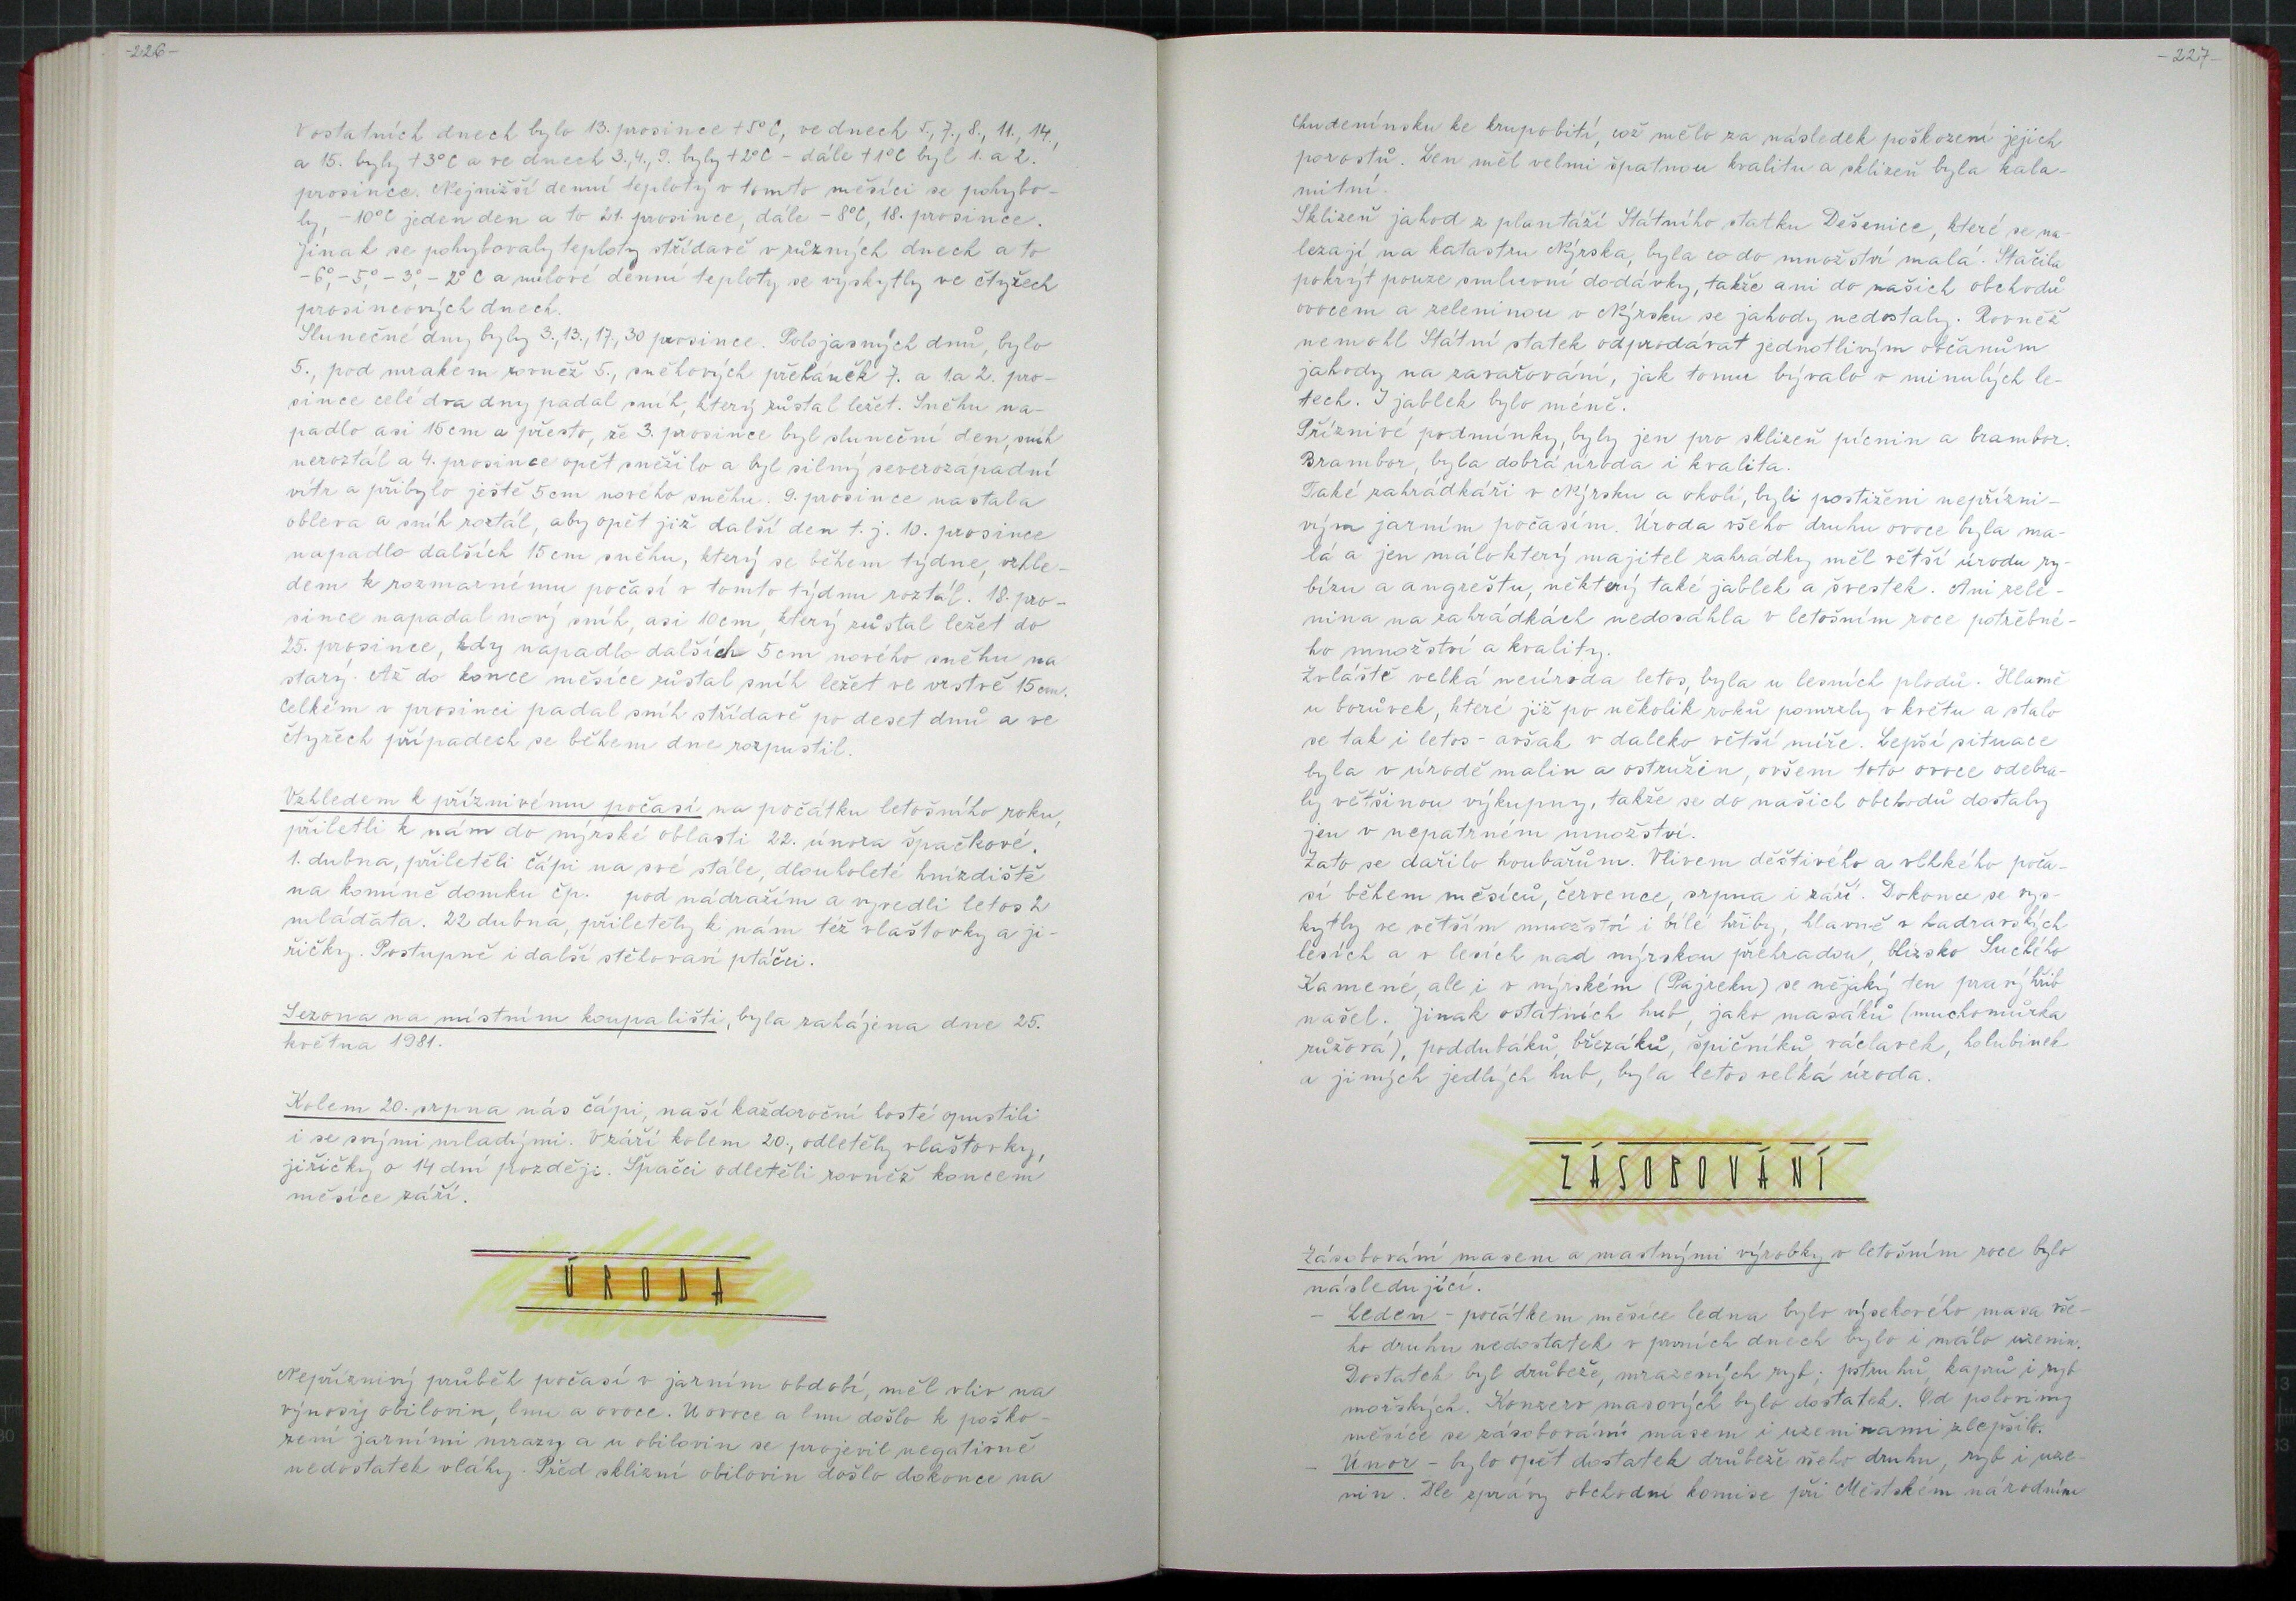 -226-
V ostatních dnech bylo 13. prosince +5°C, ve dnech 5., 7., 8., 11., 14.,
a 15. byly +3°C a ve dnech 3., 4., 9. byly +2°C - dále +1°C byl 1. a 2.
prosince. Nejnižší denní teploty v tomto měsíci se pohybo-
ly, -10°C jeden den a to 21. prosince, dále -8°C, 18. prosince.
Jinak se pohybovaly teploty střídavě v různých dnech a to
-6°, -5°, -3°, -2°C a nulové denní teploty se vyskytly ve čtyřech
prosincových dnech.
Slunečné dny byly 3., 13., 17., 30 prosince. Polojasných dnů, bylo
5., pod mrakem rovněž 5., sněhových přeháněk 7. a 1. a 2. pro-
since celé dva dny padal sníh, který zůstal ležet. Sněhu na-
padlo asi 15 cm a přesto, že 3. prosince byl sluneční den, sníh
neroztál a 4. prosince opět sněžilo a byl silný severozápadní
vítr a přibylo ještě 5 cm nového sněhu. 9. prosince nastala
obleva a sníh roztál, aby opět již další den t. j. 10. prosince
napadlo dalších 15 cm sněhu, který se během týdne, vzhle-
dem k rozmarnému počasí v tomto týdnu roztál. 18. pro-
since napadal nový sníh, asi 10 cm, který zůstal ležet do
25. prosince, kdy napadlo dalších 5 cm nového sněhu na
starý. Až do konce měsíce zůstal sníh ležet ve vrstvě 15 cm.
Celkem v prosinci padal sníh střídavě po deset dnů a ve
čtyřech případech se během dne rozpustil.
Vzhledem k příznivému počasí na počátku letošního roku,
přiletli k nám do nýrské oblasti 22. února špačkové.
1. dubna, přiletěli čápi na své stále, dlouholeté hnízdiště
na komíně domku čp. pod nádražím a vyvedli letos 2
mláďata. 22 dubna, přiletěly k nám též vlaštovky a ji-
řičky. Postupně i další stěhovaví ptáčci.
Sezona na místním koupališti, byla zahájena dne 25.
května 1981.
Kolem 20. srpna nás čápi, naší každoroční hosté opustili
i se svými mladými. V září kolem 20., odletěly vlaštovky,
jiřičky o 14 dní později. Špačci odletěli rovněž koncem
měsíce září.
ÚRODA
Nepříznivý průběh počasí v jarním období, měl vliv na
výnosy obilovin, lnu a ovoce. U ovoce a lnu došlo k poško-
zení jarními mrazy a u obilovin se projevil negativně
nedostatek vláhy. Před sklizní obilovin došlo dokonce na
-227-
Chudenínsku ke krupobití, což mělo za následek poškození jejich
porostů. Len měl velmi špatnou kvalitu a sklizeň byla kala-
mitní.
Sklizeň jahod z plantáží Státního statku Dešenice, které se na-
lezají na katastru Nýrska, byla co do množství malá. Stačila
pokrýt pouze smluvní dodávky, takže ani do našich obchodů
ovocem a zeleninou v Nýrsku se jahody nedostaly. Rovněž
nemohl Státní statek odprodávat jednotlivým občanům
jahody na zavařování, jak tomu bývalo v minulých le-
tech. I jablek bylo méně.
Příznivé podmínky, byly jen pro sklizeň pícnin a brambor.
Brambor, byla dobrá úroda i kvalita.
Také zahrádkáři v Nýrsku a okolí, byli postiženi nepřízni-
vým jarním počasím. Úroda všeho druhu ovoce byla ma-
lá a jen málokterý majitel zahrádky měl větší úrodu ry-
bízu a angreštu, některý také jablek a švestek. Ani zele-
nina na zahrádkách nedosáhla v letošním roce potřebné-
ho množství a kvality.
Zvláště velká neúroda letos, byla u lesních plodů. Hlavně
u borůvek, které již po několik roků pomrzly v květu a stalo
se tak i letos - avšak v daleko větší míře. Lepší situace
byla v úrodě malin a ostružin, ovšem toto ovoce odebra-
ly většinou výkupny, takže se do našich obchodů dostaly
jen v nepatrném množství.
Zato se dařilo houbařům. Vlivem deštivého a vlhkého poča-
sí během měsíců, července, srpna i září. Dokonce se vys-
kytly ve větším množství i bílé hřiby, hlavně v hadravských
lesích a v lesích nad nýrskou přehradou, blízko Suchého
Kamene, ale i v nýrském (Pajreku) se nějaký ten pravý hřib
našel. Jinak ostatních hub, jako masáků (muchomůrka
růžová), poddubáků, březáků, špičníků, václavek, holubinek
a jiných jedlých hub, byla letos velká úroda.
ZÁSOBOVÁNÍ
Zásobování masem a mastnými výrobky v letošním roce bylo
následující.
- Leden - počátkem měsíce ledna bylo výsekového masa vše-
ho druhu nedostatek v prvních dnech bylo i málo uzenin.
Dostatek byl drůbeže, mražených ryb, pstruhů, kaprů i ryb
mořských. Konzerv masových bylo dostatek. Od poloviny
měsíce se zásobování masem i uzeninami zlepšilo.
- Únor - bylo opět dostatek drůbeže všeho druhu, ryb i uze-
nin. Dle zprávy obchodní komise při Městském národním